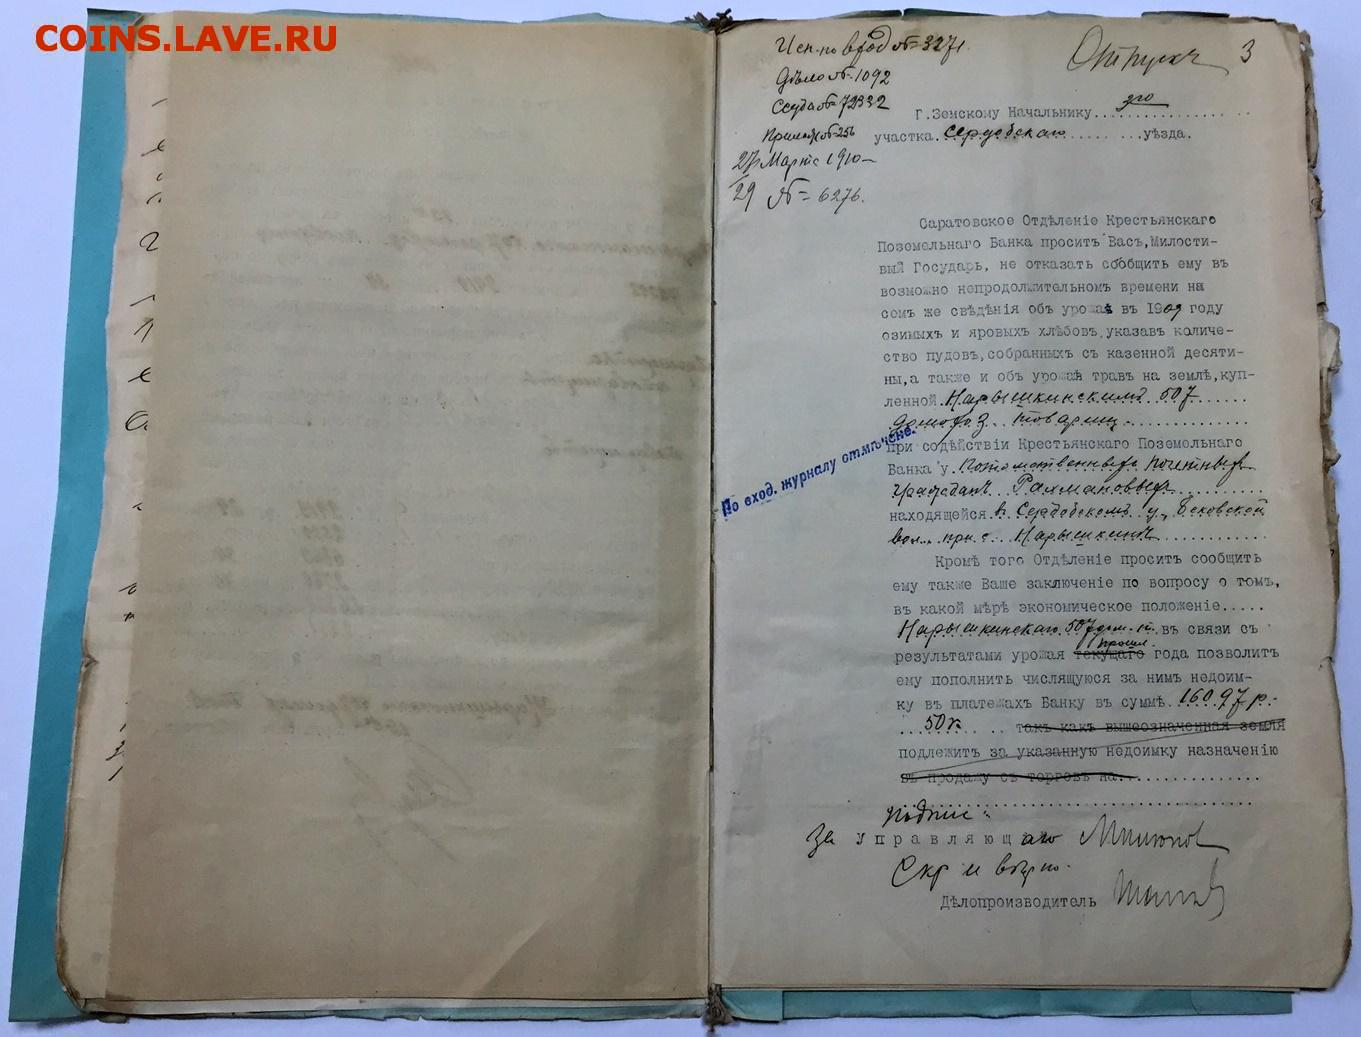 COINS.LAVE.RU
Исп. по вход № 3271
Отпускъ 3
Дѣло № 1092
Ссуда № 72332
№ 256
27 Марта 1910
29 № 6276.
Г. Земскому Начальнику. 3го
участка. Сердобскаго уѣзда.
Саратовское Отдѣленіе Крестьянскаго
Поземельнаго Банка проситъ Васъ, Милости-
вый Государь, не отказать сообщить ему въ
возможно непродолжительном времени на
семъ же свѣдѣнія объ урожаѣ въ 1909 году
озимыхъ и яровыхъ хлѣбовъ, указавъ количе-
ство пудовъ, собранныхъ съ казенной десяти-
ны, а также и объ урожаѣ травъ на землѣ, куп-
ленной Нарышкинскимъ 507
домохоз. товарищ.
При содѣйствіи Крестьянскаго Поземельнаго
Банка у. Потомственныхъ почетныхъ
гражданъ Рахмановыхъ
находящейся въ Сердобскомъ у., Бековской
вол. при с. Нарышкинѣ
По вход. журналу отмѣчено.
Кромѣ того Отдѣленіе проситъ сообщить
ему также Ваше заключеніе по вопросу о томъ,
въ какой мѣрѣ экономическое положеніе.....
Нарышкинскаго 507 дом. т. въ связи съ
результатами урожая текущаго прошл. года позволитъ
ему пополнить числящуюся за нимъ недоим-
ку въ платежахъ Банку въ суммѣ 16097 р.
50 к такъ какъ вышеозначенная земля
подлежитъ за указанную недоимку назначенію
въ продажу съ торговъ на
подпис:
За управляющаго
Скр и вѣрно.
Дѣлопроизводитель